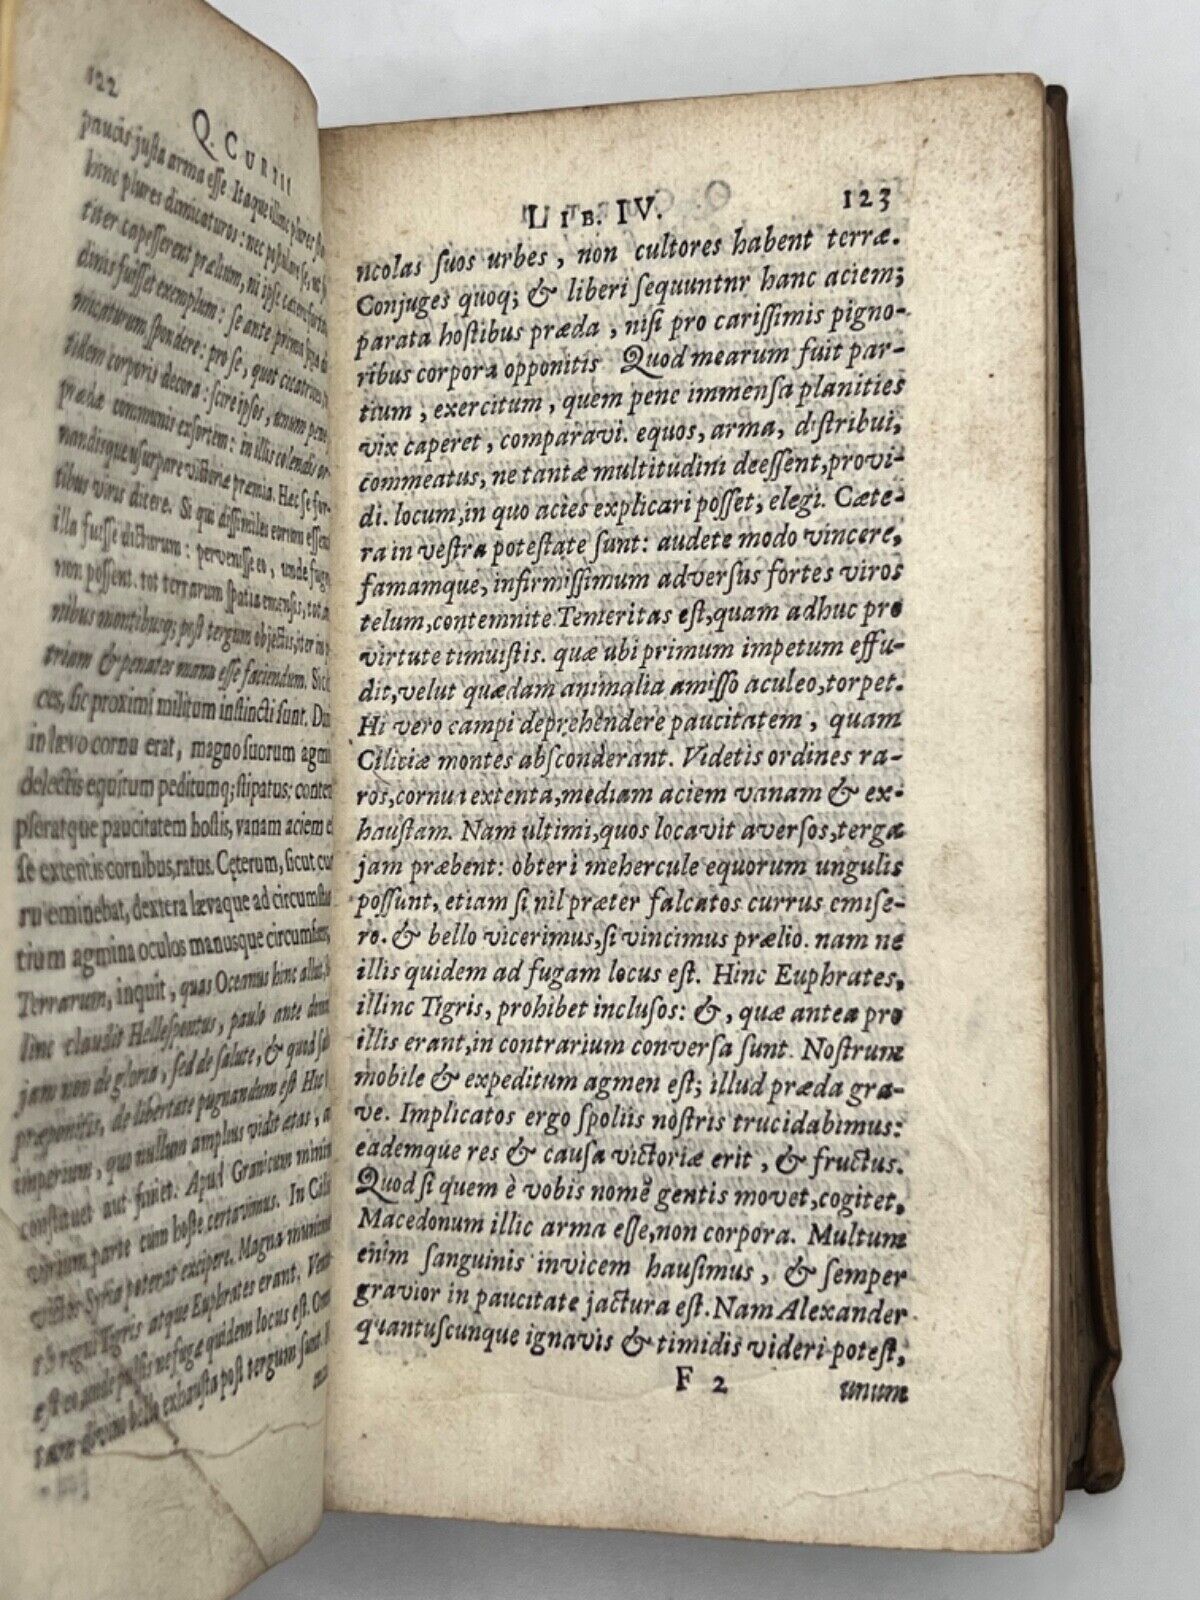 122
Q. CURTII
paucis justa arma esse. Itaque illinc plures
hinc plures dimicaturos: nec postulare se, ut
titer capesserent prælium, ni ipse cæteris
dinis fuisset exemplum: se ante prima signa di-
micaturum spondere: pro se, quot cicatrices,
tidem corporis decora: scire ipsos, unum pene
prædæ communis exsortem: in illis colendis or-
nandisque usurpare victoriæ præmia. Hæc se for-
tibus viris dicere. Si qui dissimiles eorum essent
illa fuisse dicturum: pervenisse eo, unde fuge
non possent. tot terrarum spatia emensis, tot
nibus montibusq; post tergum objectis, iter in
triam & penates manu esse faciendum. Sic
ces, sic proximi militum instincti sunt. Da
in lævo cornu erat, magno suorum agmi
delectis equitum peditumq; stipatus: contem
pseratque paucitatem hostis, vanam aciem e
se extentis cornibus, ratus. Cęterum, sicut cur
ru eminebat, dextera lævaque ad circumstan
tium agmina oculos manusque circumferens,
Terrarum, inquit, quas Oceanus hinc alluit,
linc claudit Hellespontus, paulo ante domi
jam non de gloria, sed de salute, & quod sal
præponitis, de libertate pugnandum est. Hic
imperium, quo nullum amplius vidit ætas, a
constituet aut finiet. Apud Granicum minim
virium parte cum hoste certavimus. In Cili
victos Syria poterat excipere. Magna munime
regni Tigris atque Euphrates erant. Vent
est eo, unde pulsis ne fugæ quidem locus est. Om
tam diutino bello exhausta post tergum sunt.
LIB. IV. 123
ncolas suos urbes, non cultores habent terræ.
Conjuges quoq; & liberi sequuntnr hanc aciem;
parata hostibus præda, nisi pro carissimis pigno-
ribus corpora opponitis Quod mearum fuit par-
tium, exercitum, quem penc immensa planities
vix caperet, comparavi. equos, arma, distribui,
commeatus, ne tantæ multitudini deessent, provi-
di. locum, in quo acies explicari posset, elegi. Cæte-
ra in vestra potestate sunt: audete modo vincere,
famamque, infirmissimum adversus fortes viros
telum, contemnite Temeritas est, quam adhuc pro
virtute timuistis. quæ ubi primum impetum effu-
dit, velut quædam animalia amisso aculeo, torpet.
Hi vero campi deprehendere paucitatem, quam
Ciliciæ montes absconderant. Videtis ordines ra-
ros, cornua extenta, mediam aciem vanam & ex-
haustam. Nam ultimi, quos locavit aversos, terga
jam præbent: obteri mehercule equorum ungulis
possunt, etiam si nil præter falcatos currus emise-
ro. & bello vicerimus, si vincimus prælio. nam ne
illis quidem ad fugam locus est. Hinc Euphrates,
illinc Tigris, prohibet inclusos: &, quæ antea pro
illis erant, in contrarium conversa sunt. Nostrum
mobile & expeditum agmen est; illud præda gra-
ve. Implicatos ergo spoliis nostris trucidabimus:
eademque res & causa victoriæ erit, & fructus.
Quod si quem è vobis nomē gentis movet, cogitet,
Macedonum illic arma esse, non corpora. Multum
enim sanguinis invicem hausimus, & semper
gravior in paucitate jactura est. Nam Alexander
quantuscunque ignavis & timidis videri potest,
F 2 unum